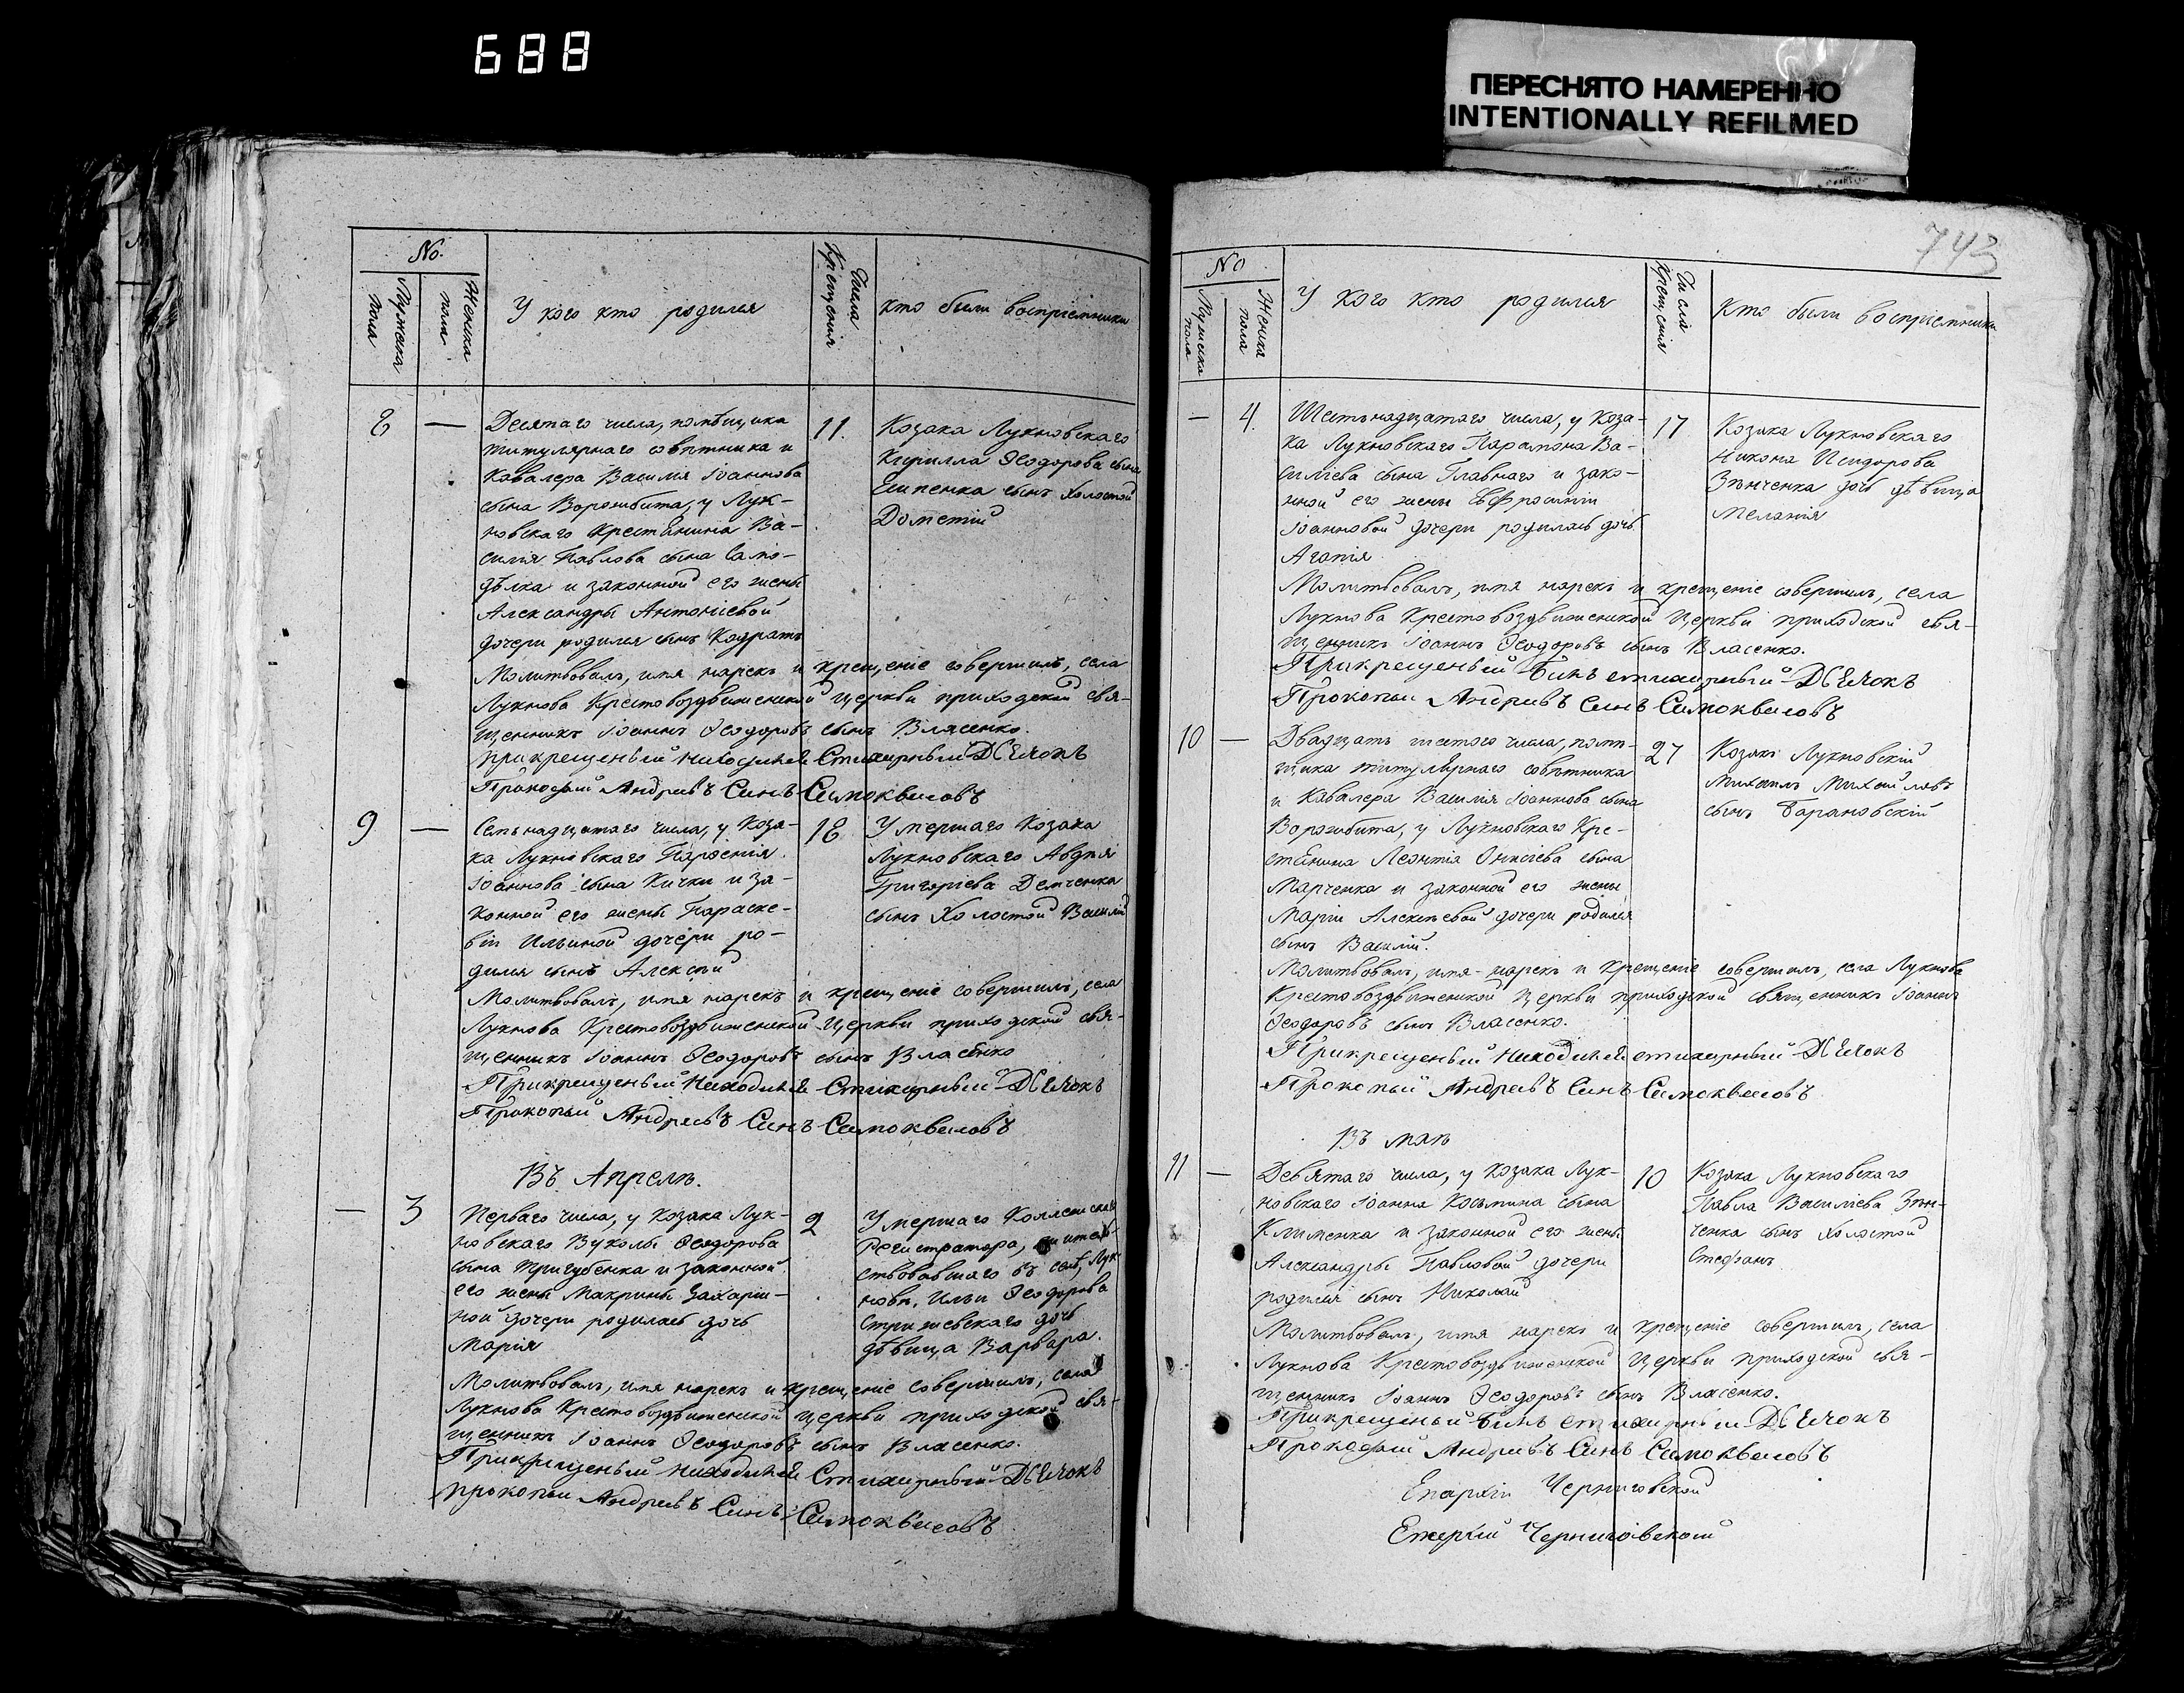 688
ПЕРЕСНЯТО НАМЕРЕННО
INTENTIONALLY REFILMED
743
No.
Мужеска пола
Женска пола
У кого кто родился
Числа Крещенія
Кто были воспріемники
8 — 11.
Десятаго числа, помѣщика
титулярнаго совѣтника и
Кавалера Василія Іоаннова
сына Ворожбита, у Лук-
новскаго Крестьянина Ва-
силія Павлова сына Само-
дѣлка и законной его жены
Александры Антоніевой
дочери родился сынъ Кодратъ
Козака Лукновскаго
Кирилла Ѳеодорова сына
Есипенка сынъ холостой
Дометій
Молитвовалъ, имя нарекъ и крещеніе совершилъ, села
Лукнова Крестовоздвиженской церкви приходской свя-
щенникъ Іоаннъ Ѳеодоровъ сынъ Власенко.
Прикрещеныи находился Стихирный Дьячокъ
Прокофій Андреевъ Синъ Самоквасовъ
9 — 18
Семьнадцатаго числа, у Коза-
ка Лукновскаго Парѳенія
Іоаннова сына Кички и за-
конной его жены Параске-
віи Ильиной дочери ро-
дился сынъ Алексѣй
Умершаго Козака
Лукновскаго Авдѣя
Григоріева Демченка
сынъ Холостой Василій
Молитвовалъ, имя нарекъ и крещеніе совершилъ, села
Лукнова Крестовоздвиженской Церкви приходской свя-
щенникъ Іоаннъ Ѳеодоровъ сынъ Власенко
Прикрещеныи Находился Стихирный Дьячокъ
Прокопый Андреевъ Синъ Самоквасовъ
Въ Апрелѣ.
— 3 2
Перваго числа, у Козака Лук-
новскаго Вуколы Ѳеодорова
сына Тригубенка и законной
его жены Макрины Захаріи-
ной дочери родилась дочь
Марія
Умершаго Коллежскаго
Регистратора, жител-
ствовавшаго въ селѣ Лук-
новѣ, Ильи Ѳеодорова
Стрижевскаго дочь
дѣвица Варвара.
Молитвовалъ, имя нарекъ и крещеніе совершилъ, села
Лукнова Крестовоздвиженской церкви приходской свя-
щенникъ Іоаннъ Ѳеодоровъ сынъ Власенко.
Прикрещеныи находился Стихирный Дьячокъ
Прокопыи Андреевъ Синъ Самоквасовъ
No
Мужеска пола
Женска пола
У кого кто родился
Числа Крещенія
Кто были воспріемники
— 4. 17
Шестьнадцатаго числа, у Коза-
ка Лукновскаго Парамона Ва-
силіева сына Главнаго и зако-
нной его жены Евфросиніи
Іоанновой дочери родилась дочь
Агапія
Козака Лукновскаго
Никона Исидорова
Зѣнченка дочь дѣвица
Меланія
Молитвовалъ, имя нарекъ и крещеніе совершилъ, села
Лукнова Крестовоздвиженской Церкви приходской свя-
щенникъ Іоаннъ Ѳеодоровъ сынъ Власенко.
Прикрещеныи Билъ стихирный Дьячокъ
Прокопыи Андреевъ Синъ Самоквасовъ
10 — 27
Двадцать шестого числа, помѣ-
щика титулярнаго совѣтника
и Кавалера Василія Іоаннова сына
Ворожбита, у Лукновскаго Кре-
стьянина Леонтія Онисіева сына
Марченка и законной его жены
Маріи Алексѣевой дочери родился
сынъ Василій.
Козакъ Лукновскій
Михаилъ Михайловъ
сынъ Барановскій
Молитвовалъ, имя нарекъ и крещеніе совершилъ, села Лукнова
Крестовоздвиженской Церкви приходской священникъ Іоаннъ
Ѳеодоровъ сынъ Власенко.
Прикрещеныи Находился стихирный Дьячокъ
Прокопый Андреевъ Синъ Самоквасовъ
Въ маѣ
11 — 10
Девятаго числа, у Козака Лук-
новскаго Іоанна Косьмина сына
Клименка и законной его жены
Александры Павловой дочери
родился сынъ Николай
Козака Лукновскаго
Павла Василіева Зѣн-
ченка сынъ холостой
Стефанъ
Молитвовалъ, имя нарекъ и крещеніе совершилъ, села
Лукнова Крестовоздвиженской Церкви приходской свя-
щенникъ Іоаннъ Ѳеодоровъ сынъ Власенко.
Прикрещеныи Билъ стихирныи Дьячокъ
Прокофій Андреевъ Синъ Самоквасовъ
Епархіи Черниговской
Епархій Черниговской